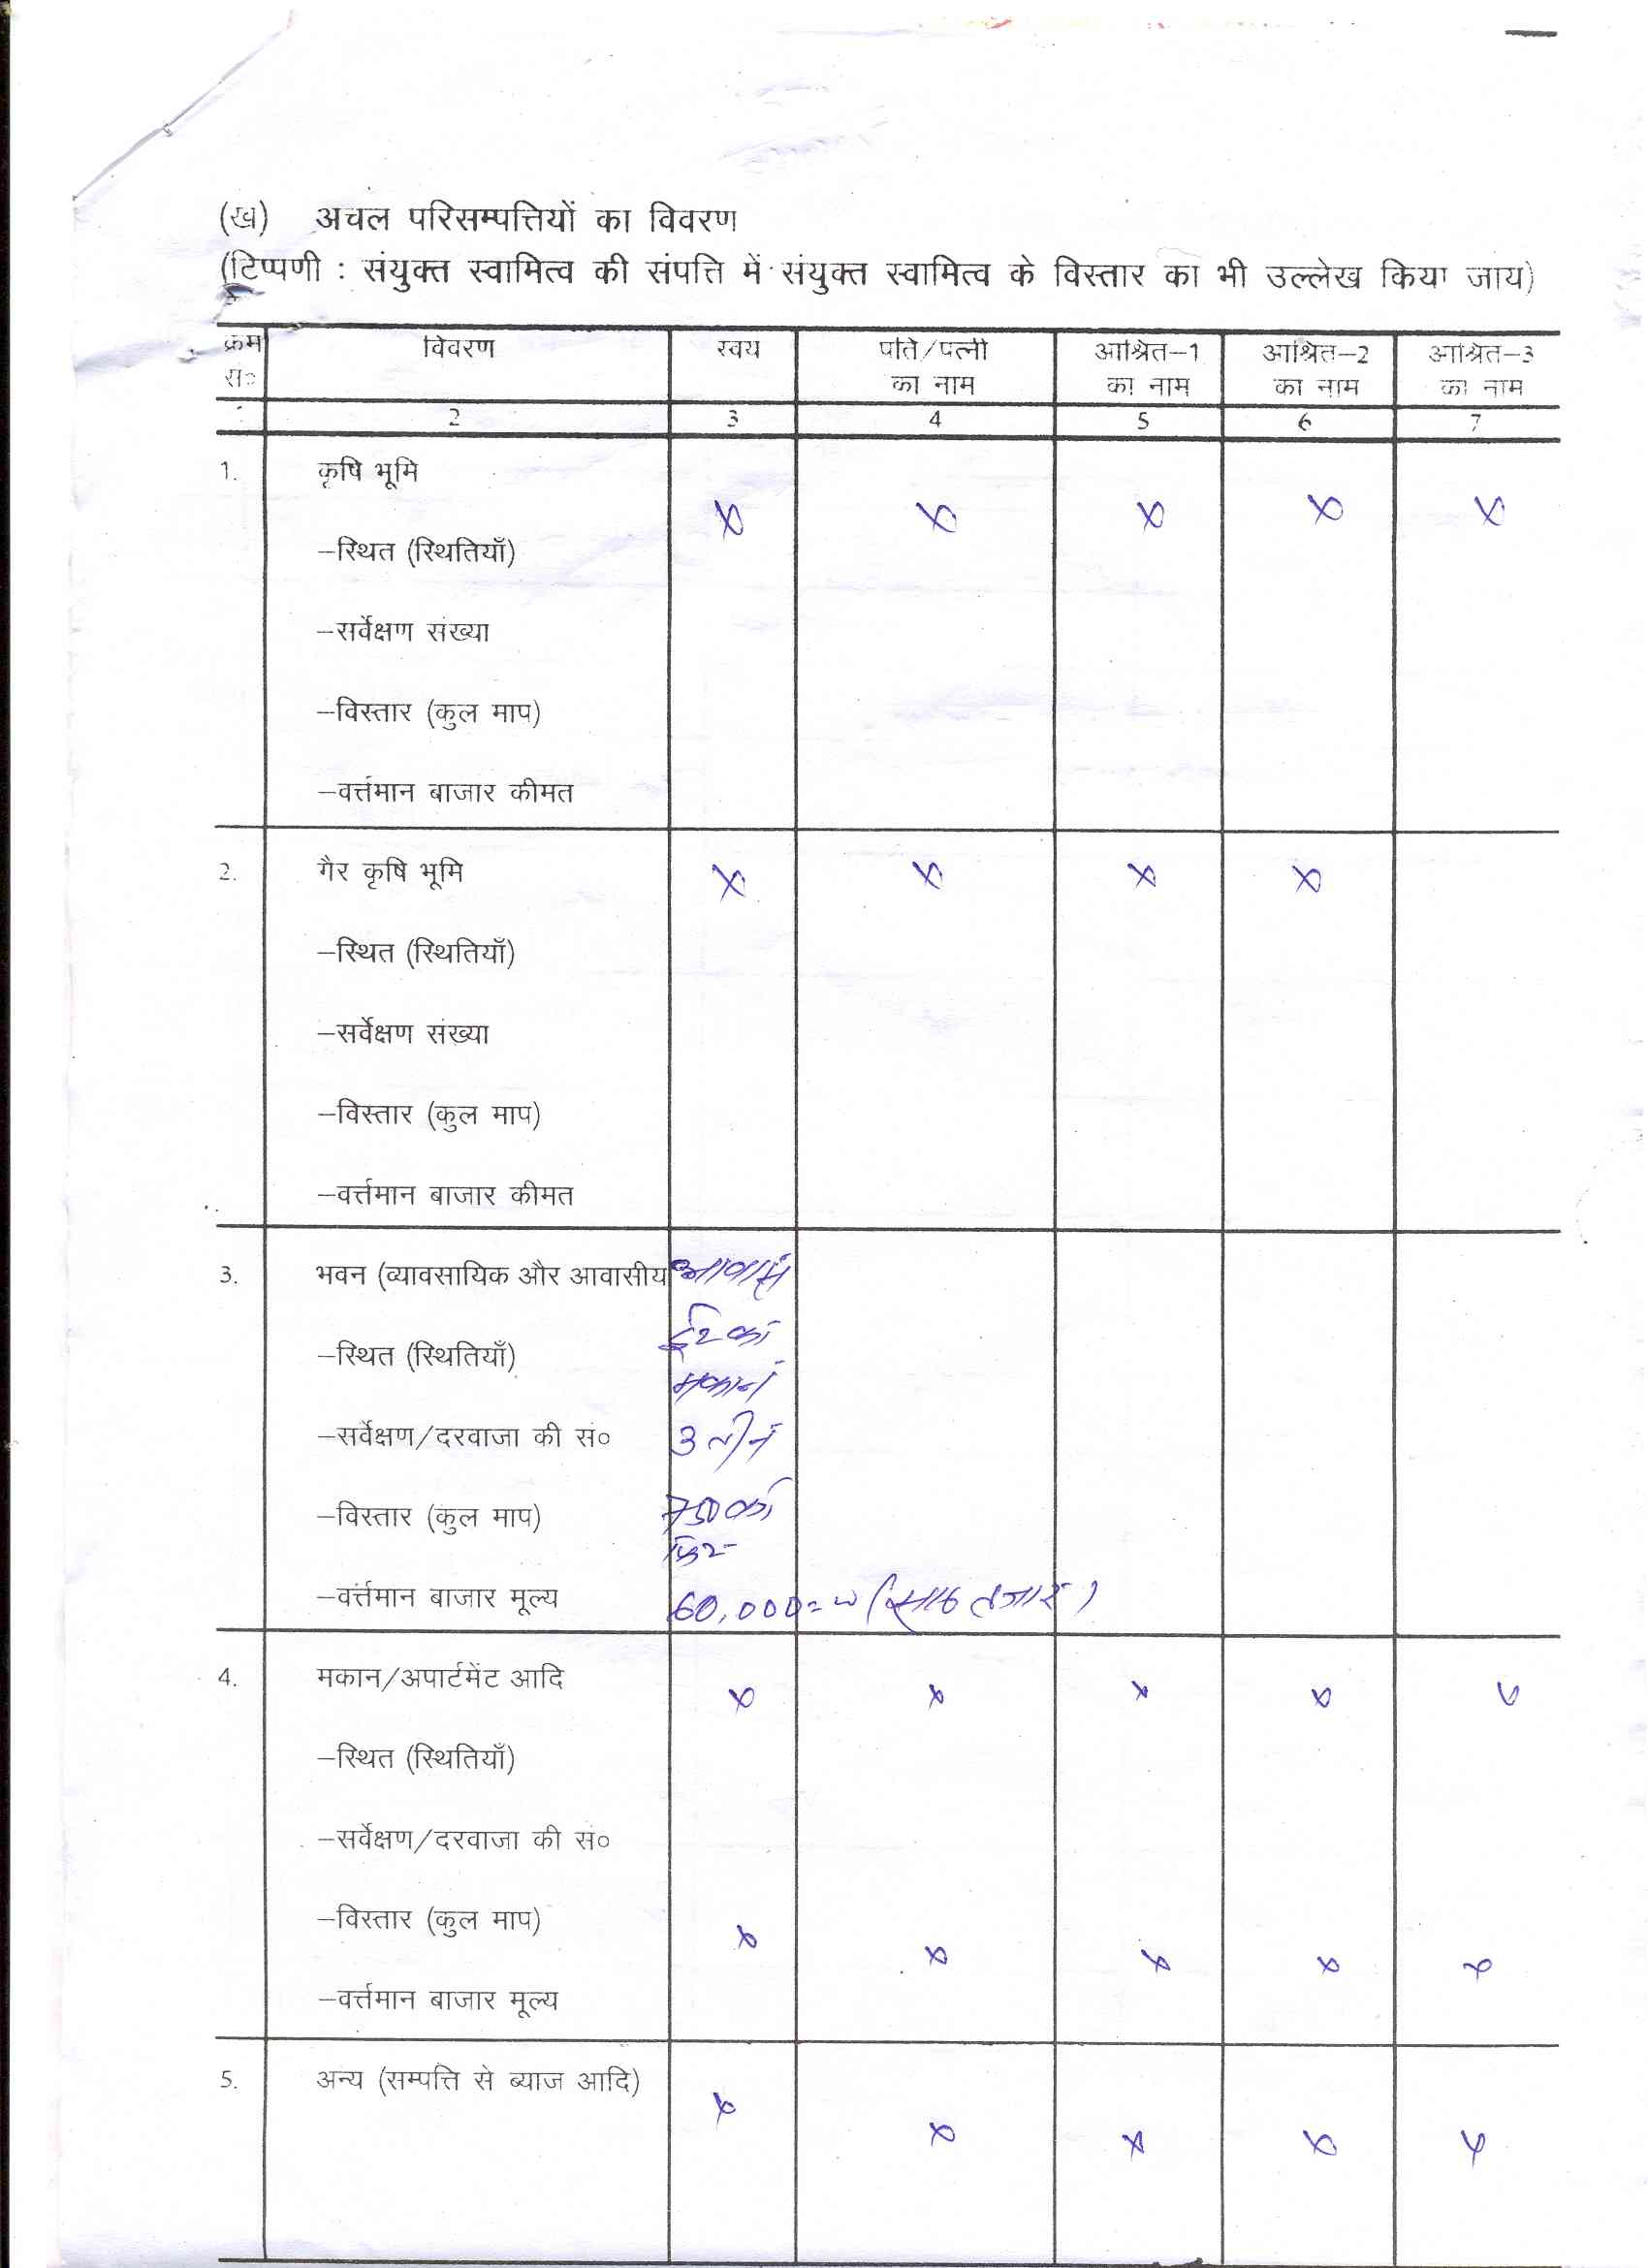 (ख) अचल परिसम्पत्तियों का विवरण
(टिप्पणी : संयुक्त स्वामित्व की संपत्ति में संयुक्त स्वामित्व के विस्तार का भी उल्लेख किया जाय)
क्रम विवरण स्वयं पति/पत्नी आश्रित–1 आश्रित–2 आश्रित–3
सं० का नाम का नाम का नाम का नाम
2 3 4 5 6 7
1. कृषि भूमि
x x x x x
–स्थित (स्थितियाँ)
–सर्वेक्षण संख्या
–विस्तार (कुल माप)
–वर्त्तमान बाजार कीमत
2. गैर कृषि भूमि x x x x
–स्थित (स्थितियाँ)
–सर्वेक्षण संख्या
–विस्तार (कुल माप)
–वर्त्तमान बाजार कीमत
3. भवन (व्यावसायिक और आवासीय
–स्थित (स्थितियाँ) ईट का
मकान
–सर्वेक्षण/दरवाजा की सं० 3 तीन
–विस्तार (कुल माप) 750
फिट
–वर्त्तमान बाजार मूल्य 60,000= (साठ हजार)
4. मकान/अपार्टमेंट आदि x x x x x
–स्थित (स्थितियाँ)
–सर्वेक्षण/दरवाजा की सं०
–विस्तार (कुल माप) x x x x x
–वर्त्तमान बाजार मूल्य
5. अन्य (सम्पत्ति से ब्याज आदि) x x x x x